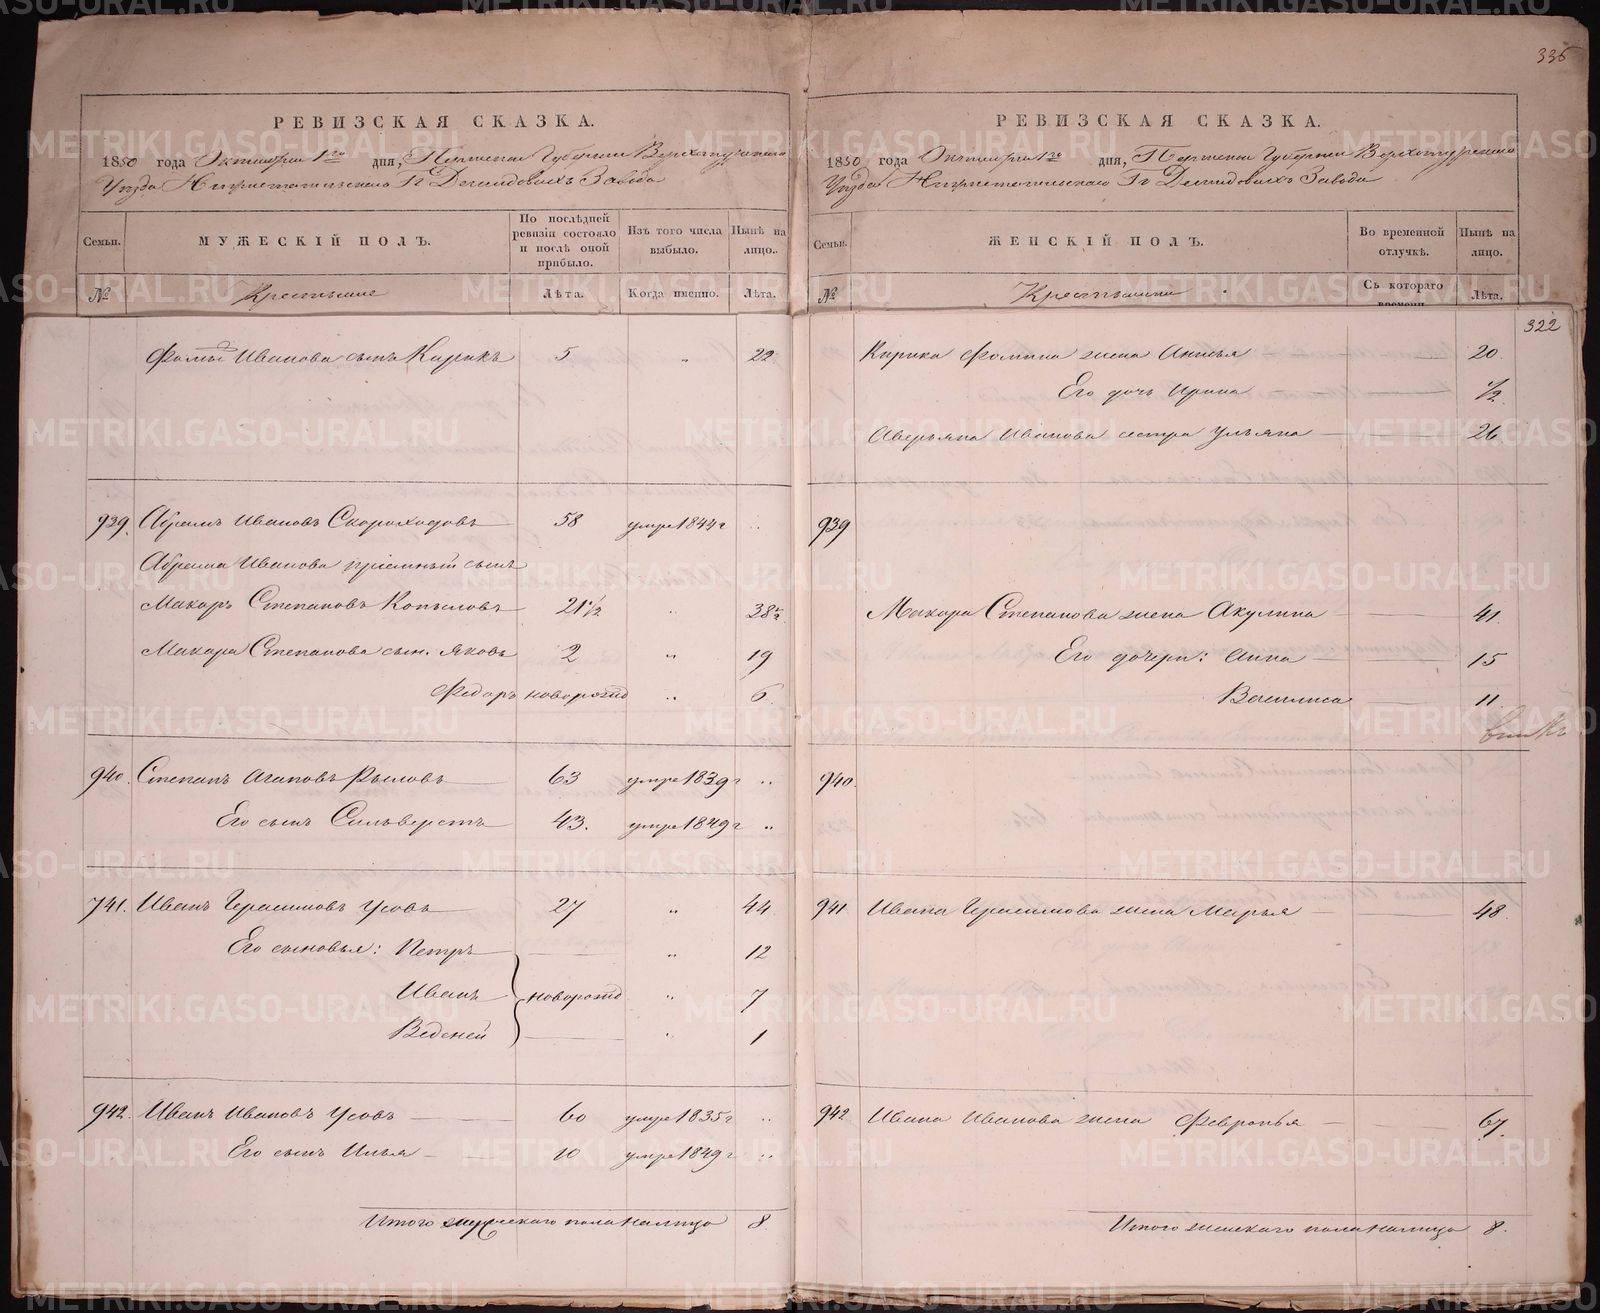 336
РЕВИЗСКАЯ СКАЗКА.
1850 года Октября 1го дня, Пермской Губернии Верхотурскаго
Уезда Нижнетагильскаго Гг Демидовыхъ Завода
Семьи.
МУЖЕСКІЙ ПОЛЪ.
По послѣдней ревизіи состояло и послѣ оной прибыло.
Изъ того числа выбыло.
Нынѣ на лицо.
№
Крестьяне
Лѣта.
Когда именно.
Лѣта.
Фомы Иванова сынъ Кирикъ 5 " 22
939. Абрамъ Ивановъ Скороходовъ 58 умре 1844 г "
Абрама Иванова пріемный сынъ
Макаръ Степановъ Копыловъ 21 1/2 " 38 1/2
Макара Степанова сын. Яковъ 2 " 19
Федоръ новорожд " 6
940. Степанъ Агаповъ Рыловъ 63 умре 1839 г "
Его сынъ Сильверстъ 43. умре 1849 г "
741. Иванъ Герасимовъ Усовъ 27 " 44
Его сыновья: Петръ " 12
Иванъ новорожд " 7
Веденей " 1
942. Иванъ Ивановъ Усовъ 60 умре 1835 г "
Его сынъ Илья 10 умре 1849 г "
Итого мужескаго пола налицо 8.
РЕВИЗСКАЯ СКАЗКА.
1850 года Октября 1го дня, Пермской Губернии Верхотурскаго
Уезда Нижнетагильскаго Гг Демидовыхъ Завода
Семьи.
ЖЕНСКІЙ ПОЛЪ.
Во временной отлучкѣ.
Нынѣ на лицо.
№
Крестьянки
Съ котораго времени.
Лѣта.
322
Кирика Фомина жена Анисья 20
Его дочь Ирина 1/2
Аверьяна Иванова сестра Ульяна 26
939
Макара Степанова жена Акулина 41.
Его дочери: Анна 15
Василиса 11
940.
941 Ивана Герасимова жена Марья 48
942 Ивана Иванова жена Февронья 67.
Итого женскаго пола налицо 8.
METRIKI.GASO-URAL.RU